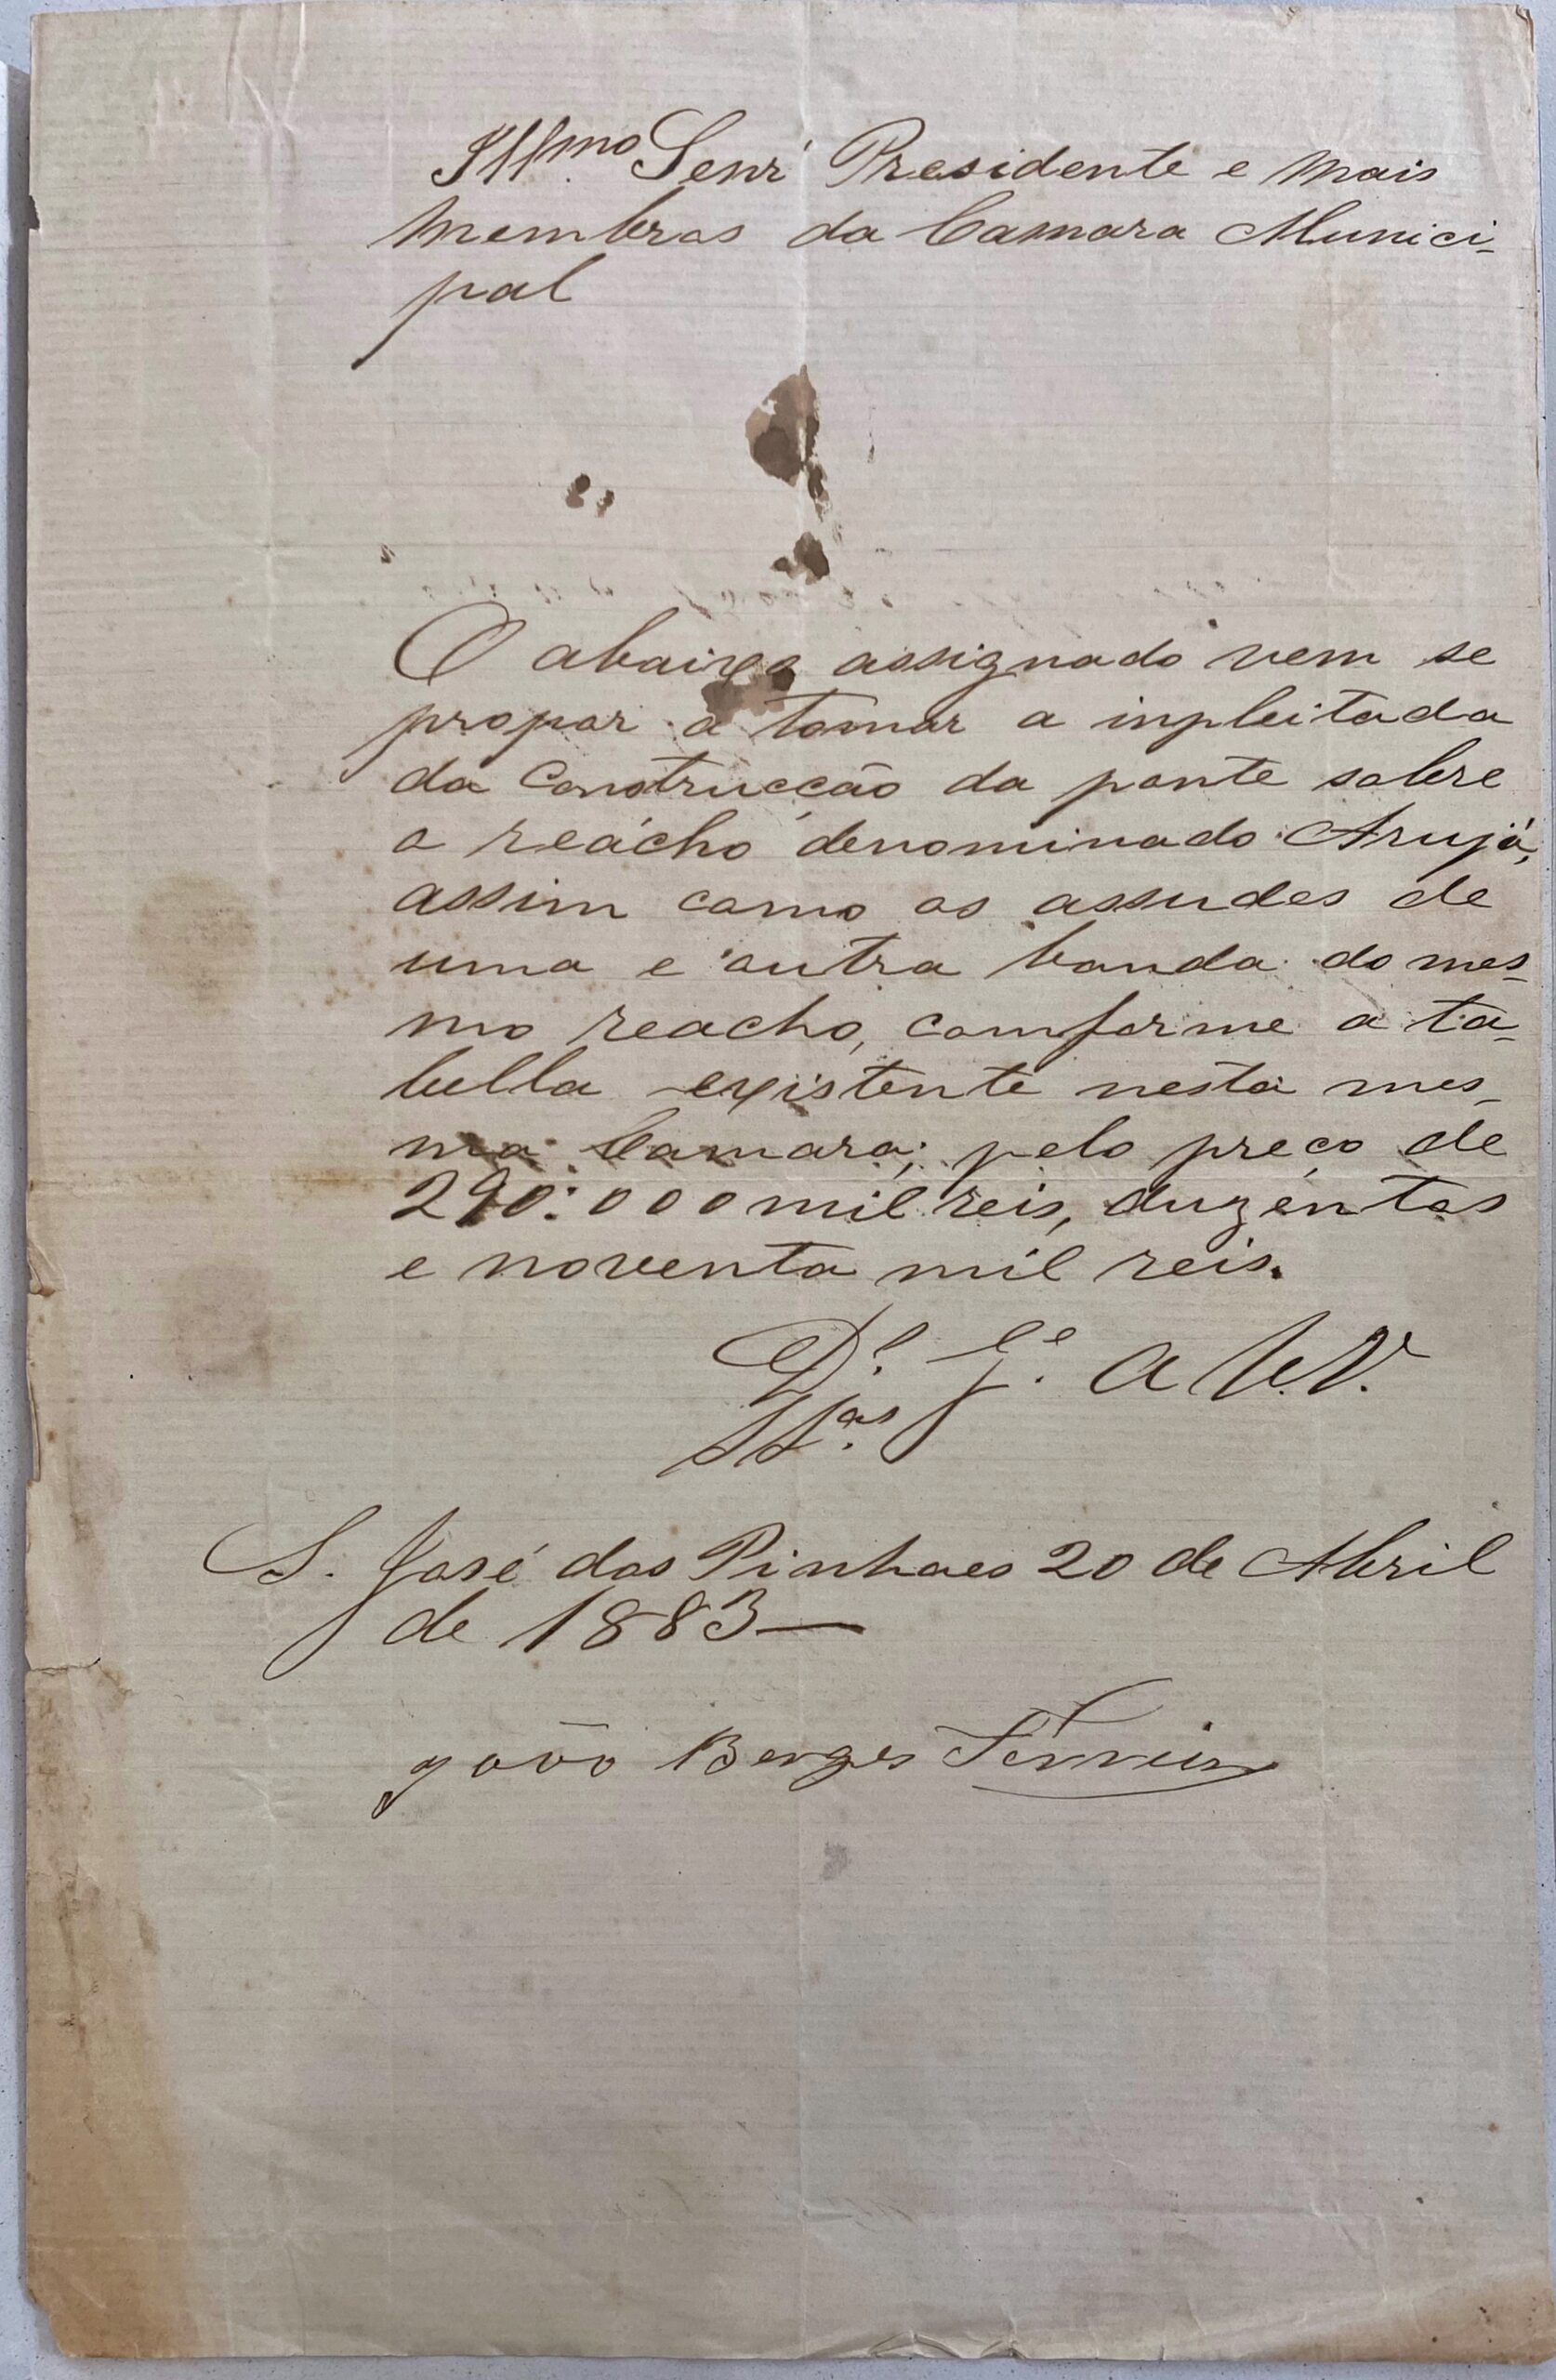 Illmo. Senr. Presidente e mais
membros da Camara Munici-
pal
O abaixo assignado vem se
propor a tomar a inpleitada
da Construcção da ponte sobre
o reacho denominado Arujá,
assim como os assudes de
uma e outra banda do mes-
mo reacho, comforme a ta-
bella existente nesta mes-
ma Camara; pelo preço de
290:000 mil reis, duzentos
e noventa mil reis.
Ds. Ge. a V.V.
SSas.
S. José dos Pinhaes 20 de Abril
de 1883—
João Borges Ferreira